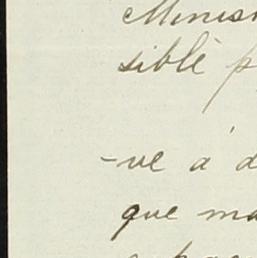 Minis
sible p
-ve a d
que ma